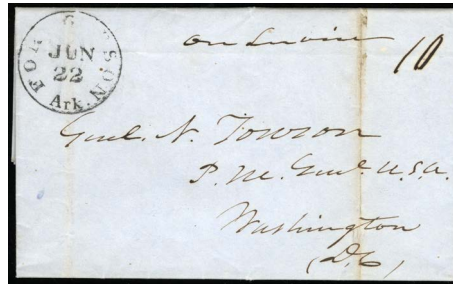 FORT GIBSON
JUN
22
Ark.
on Service
10
Genl. N. Towson
P. M. Genl. U.S.A.
Washington
(D.C)